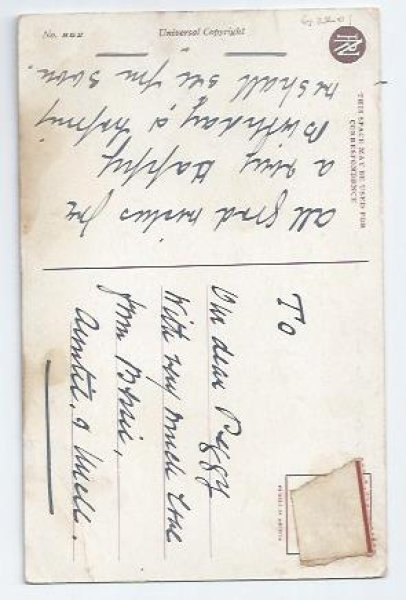 No.
Universal Copyright
THIS SPACE MAY BE USED FOR
CORRESPONDENCE
All good wishes for
a very Happy
Birthday, & hoping
we shall see you soon.
To
Our dear Peggy
With very much love
from
Auntie, & Uncle.